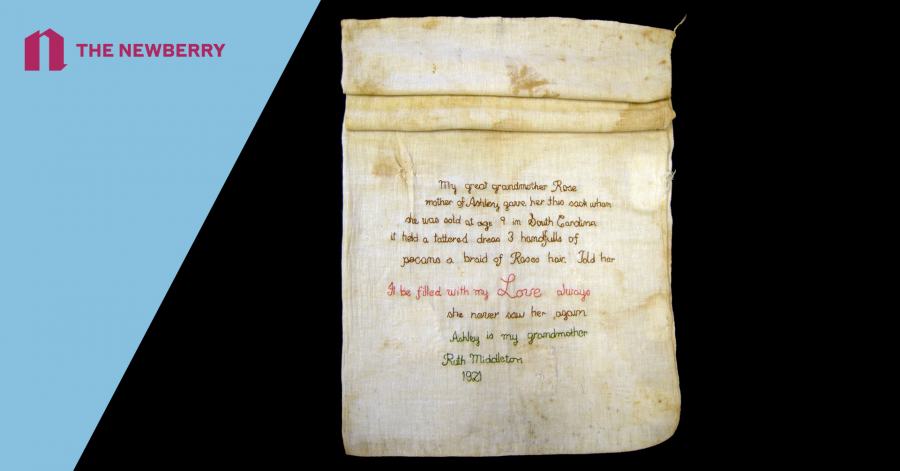 THE NEWBERRY
My great grandmother Rose
mother of Ashley gave her this sack when
she was sold at age 9 in South Carolina
it held a tattered dress 3 handfulls of
pecans a braid of Roses hair. Told her
It be filled with my Love always
she never saw her again
Ashley is my grandmother
Ruth Middleton
1921